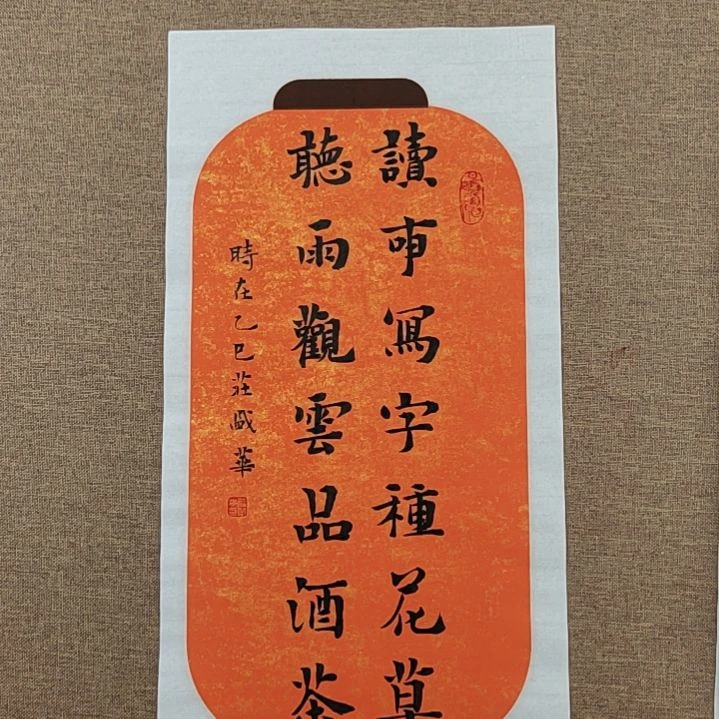 讀書寫字種花草
聽雨觀雲品酒茶
時在乙巳莊盛華